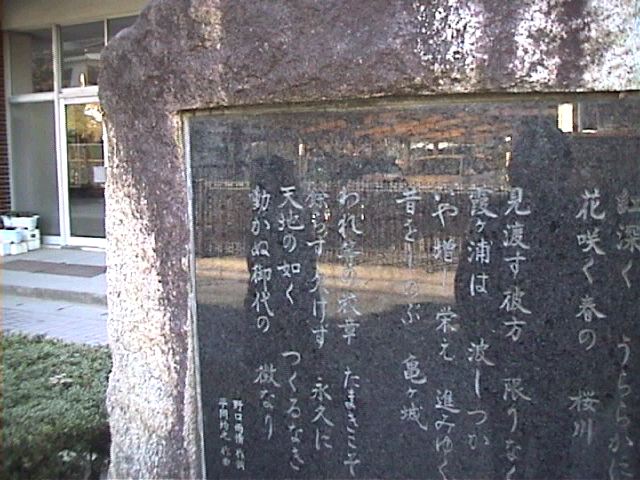 深く うららかに
花咲く春の 桜川
見渡す彼方 限りなく
霞ヶ浦は 波しづか
や増し栄え 進みゆく
昔をしのぶ 亀ヶ城
われ等の校章 たまきこそ
らず欠けず 永久に
天地の如く つくるなき
動かぬ御代の 徴なり
野口雨情 作詞
平岡均之 作曲